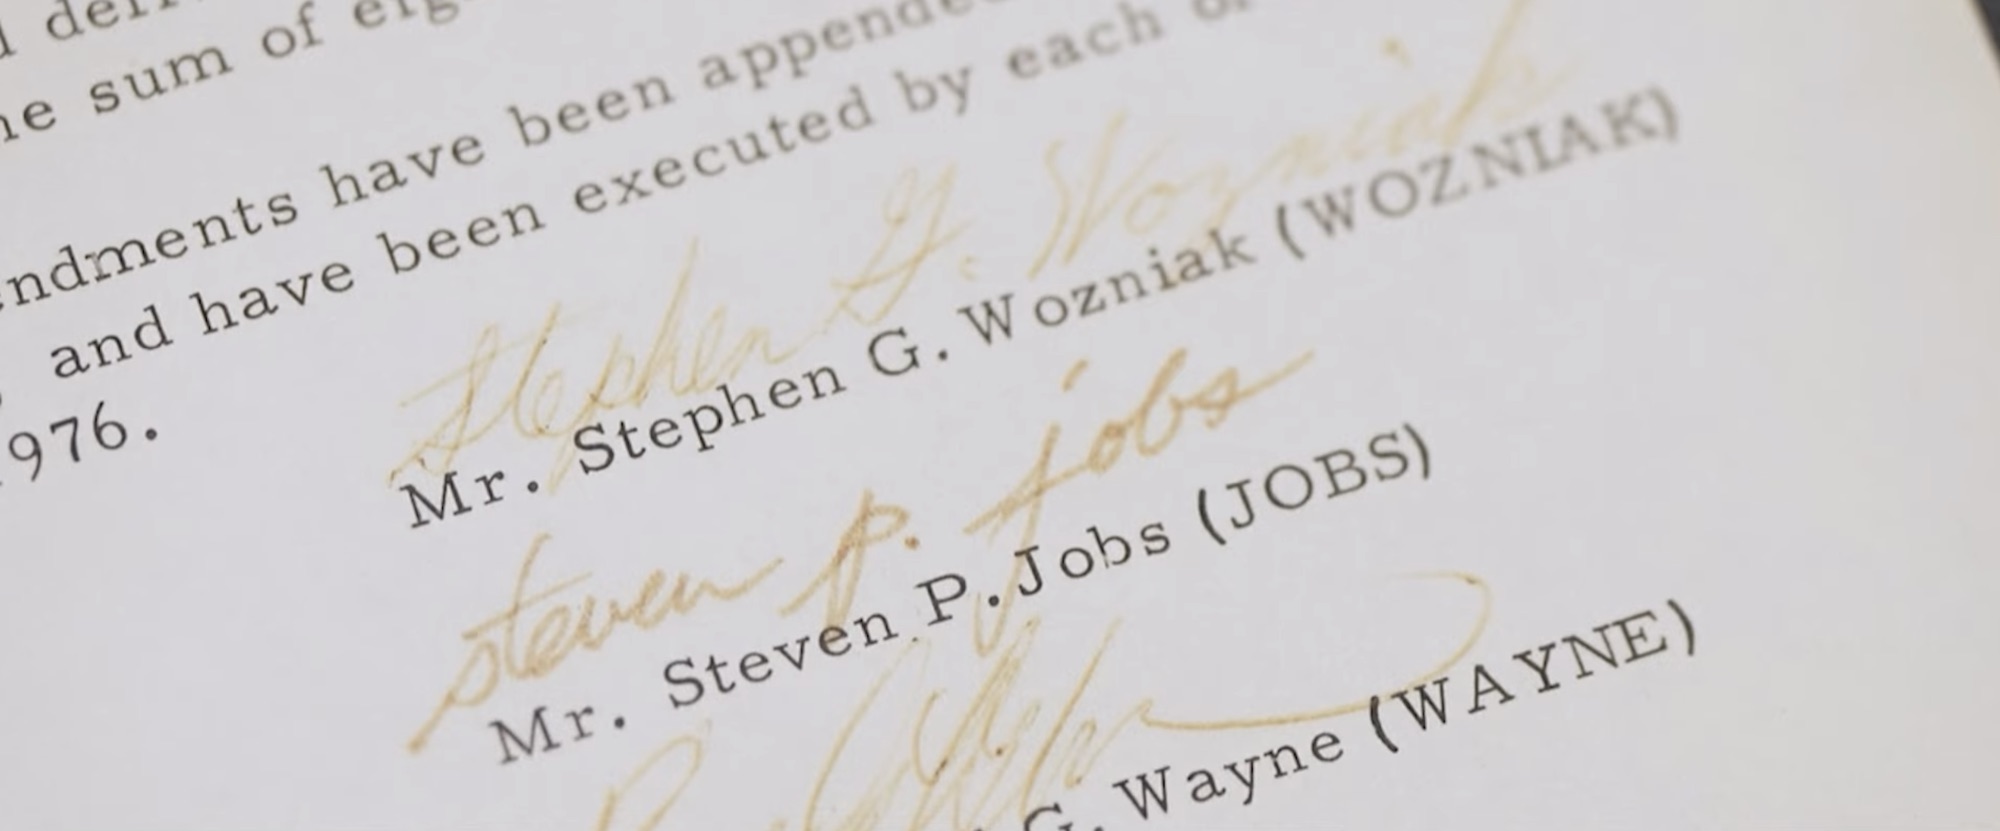 the sum of
endments have been appended
and have been executed by each of
1976.
Stephen G. Wozniak
Mr. Stephen G. Wozniak (WOZNIAK)
steven p. jobs
Mr. Steven P. Jobs (JOBS)
G. Wayne (WAYNE)